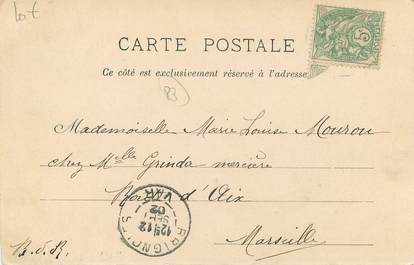 Lot
CARTE POSTALE
Ce côté est exclusivement réservé à l'adresse
83
5
Mademoiselle Marie Louise Mourou
chez Mlle Grinda mercière
d'Aix
Marseille
B.d.R.
BRIGNOLES
VAR
12
SEPT
02